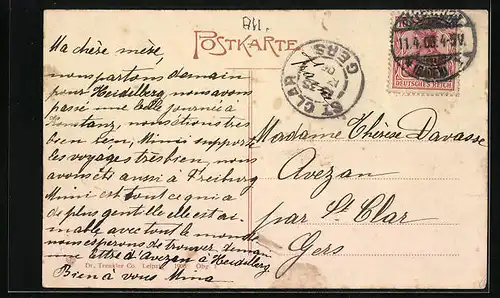 AH.
POSTKARTE
Ma chère mère,
nous partons demain
pour Heidelberg, nous avons
passé une belle journée à
Constanz, nous étions très
bien bien, Mimi suppose
les voyages très bien, nous
avons été aussi à Freiburg
Mimi est tout ce qui a
de plus gentille elle est ai-
mable avec tout le monde
nous esperons de trouver demain
une lettre d'Avezan à Heidelberg
Bien à vous Mina
Dr. Trenkler Co. Leipzig
ST CLAR
GERS
11.4.06. 4-5V.
DEUTSCHES REICH
Madame Thérèse Davasse
Avezan
par St Clar
Gers